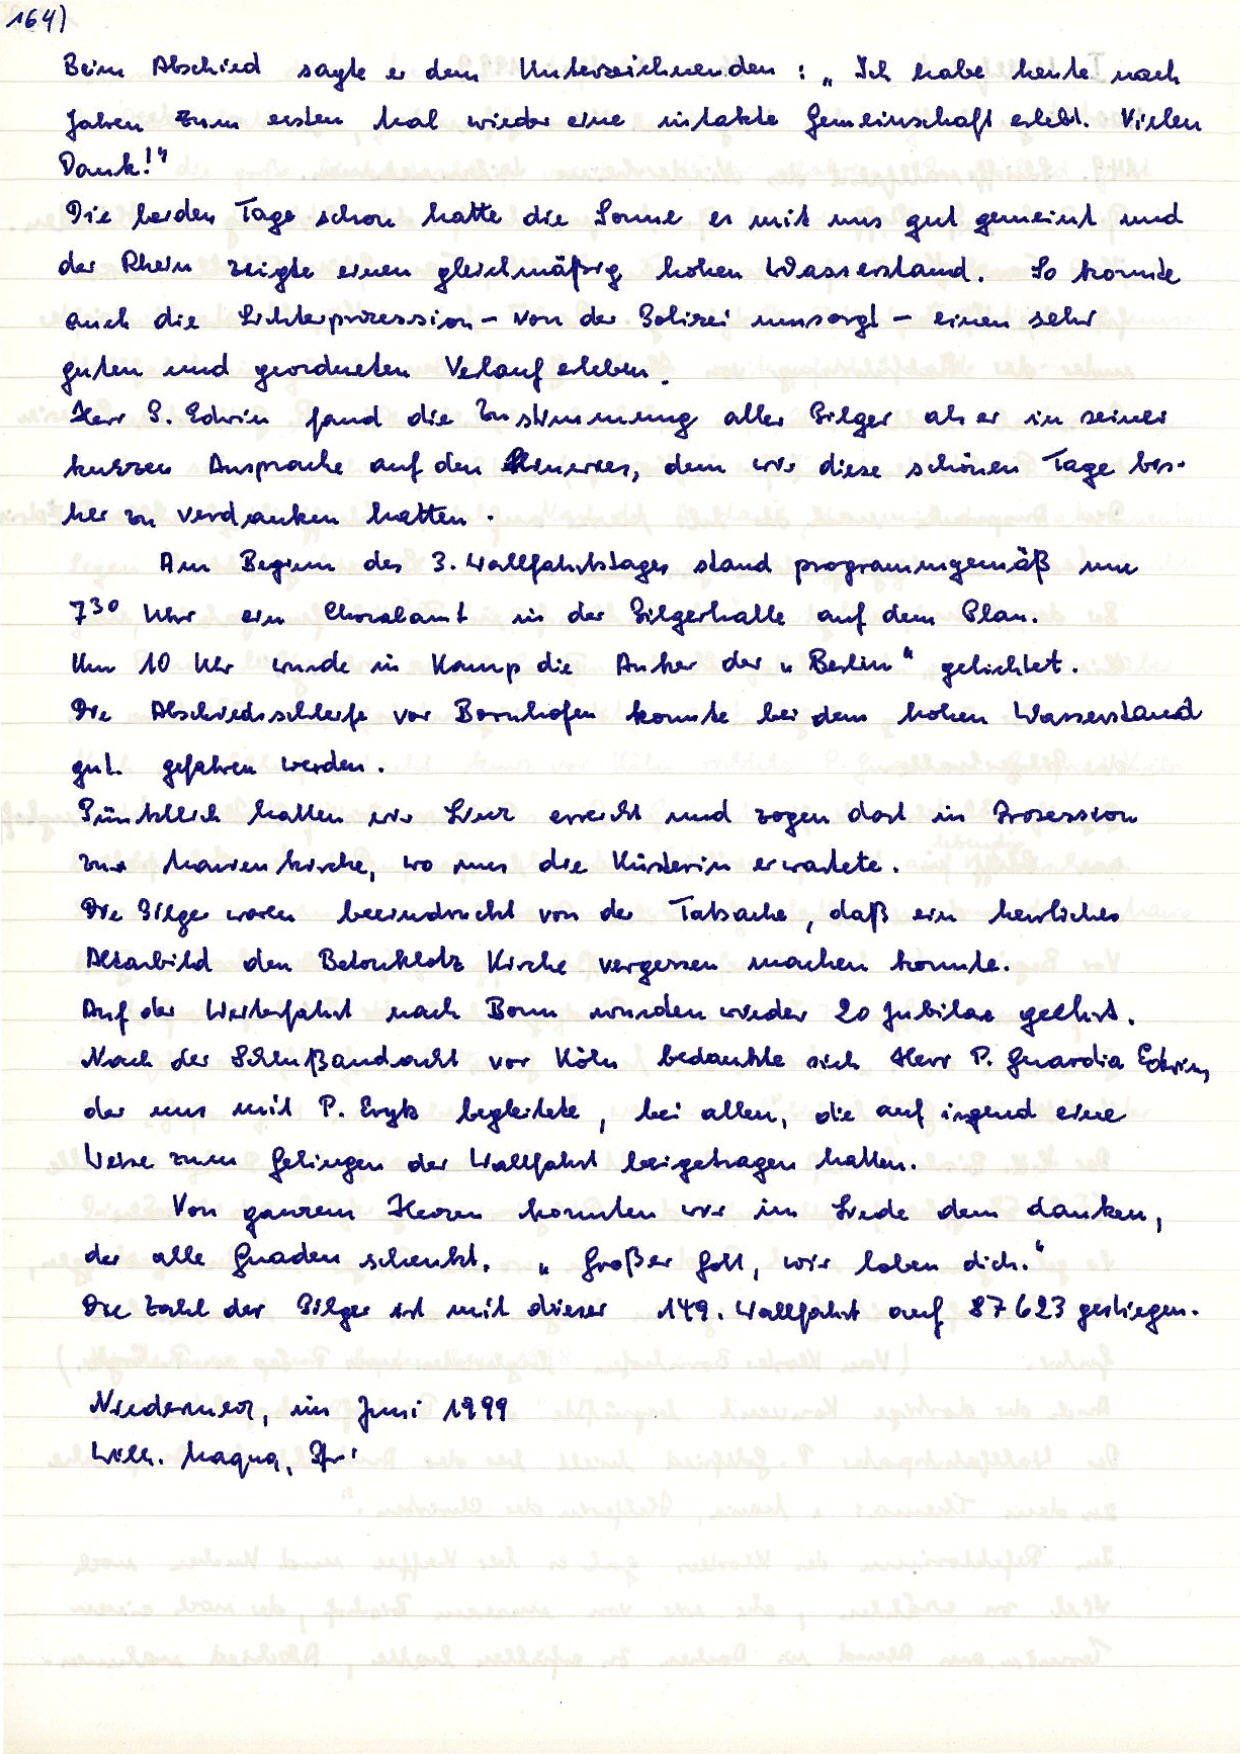 164)
Beim Abschied sagte er dem Unterzeichnenden : „Ich habe heute nach
Jahren zum ersten Mal wieder eine intakte Gemeinschaft erlebt. Vielen
Dank!"
Die beiden Tage schon hatte die Sonne es mit uns gut gemeint und
der Rhein zeigte einen gleichmäßig hohen Wasserstand. So konnte
auch die Lichterprozession – von der Polizei umsorgt – einen sehr
guten und geordneten Verlauf erleben.
Herr P. Edwin fand die Zustimmung aller Pilger als er in seiner
kurzen Ansprache auf den hinwies, dem wir diese schönen Tage bis-
her zu verdanken hatten.
Am Beginn des 3. Wallfahrtstages stand programmgemäß um
7³⁰ Uhr ein Choralamt in der Pilgerhalle auf dem Plan.
Um 10 Uhr wurde in Kamp die Anker der „Berlin" gelichtet.
Die Abschiedsschleife vor Bornhofen konnte bei dem hohen Wasserstand
gut gefahren werden.
Pünktlich hatten wir Linz erreicht und zogen dort in Prozession
zur Marienkirche, wo uns die Küsterin erwartete.
Die Pilger waren beeindruckt von der Tatsache, daß ein herrliches
Altarbild den Betonklotz Kirche vergessen machen konnte.
Auf der Weiterfahrt nach Bonn wurden wieder 20 Jubilare geehrt.
Nach der Schlußandacht vor Köln bedankte sich Herr P. Guardian Edwin,
der uns mit P. Eryk begleitete, bei allen, die auf irgend eine
Weise zum Gelingen der Wallfahrt beigetragen hatten.
Von ganzem Herzen konnten wir im Liede dem danken,
der alle Gnaden schenkt. „Großer Gott, wir loben dich."
Die Zahl der Pilger ist mit dieser 149. Wallfahrt auf 87 623 gestiegen.
Niedermerz, im Juni 1999
Wilh. Maqua, Pfr.